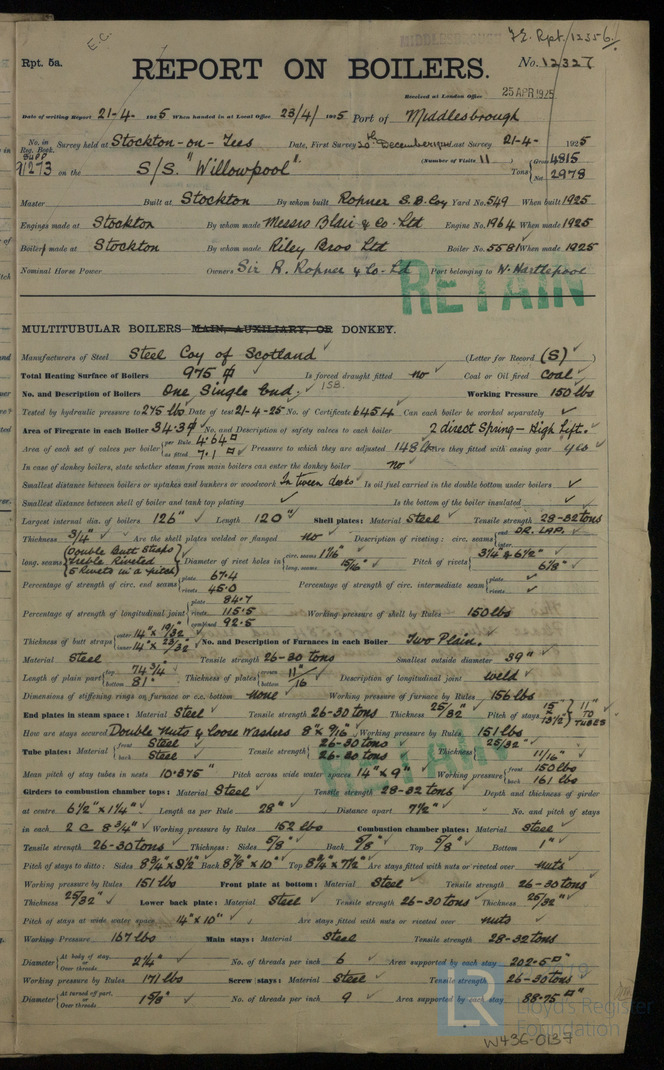 E.C.
MIDDLESBROUGH
F.E. Rpt. 12356.
Rpt. 5a.
REPORT ON BOILERS.
No. 12327
Received at London Office 25 APR 1925
Date of writing Report 21-4- 1925 When handed in at Local Office 23/4/ 1925 Port of Middlesbrough
No. in Reg. Book. Survey held at Stockton-on-Tees Date, First Survey 20th December 1924 Last Survey 21-4- 1925
SUPP 91273 on the S/S. "Willowpool". (Number of Visits 11) Tons Gross 4815 Net 2978
Master Built at Stockton By whom built Ropner S.B. Coy Yard No. 549 When built 1925
Engines made at Stockton By whom made Messrs Blair & Co. Ltd Engine No. 1964 When made 1925
Boilers made at Stockton By whom made Riley Bros Ltd Boiler No. 5581 When made 1925
Nominal Horse Power Owners Sir R. Ropner & Co. Ld Port belonging to W. Hartlepool
RETAIN
MULTITUBULAR BOILERS MAIN, AUXILIARY, OR DONKEY.
Manufacturers of Steel Steel Coy of Scotland (Letter for Record (S) )
Total Heating Surface of Boilers 975 ф Is forced draught fitted no Coal or Oil fired Coal
No. and Description of Boilers One Single End. 15B. Working Pressure 150 lbs
Tested by hydraulic pressure to 275 lbs Date of test 21-4-25 No. of Certificate 6454 Can each boiler be worked separately ✓
Area of Firegrate in each Boiler 34.3 ф No. and Description of safety valves to each boiler 2 direct Spring - High lift.
Area of each set of valves per boiler per Rule 4.64 □ as fitted 7.1 □ Pressure to which they are adjusted 148 lb Are they fitted with easing gear yes
In case of donkey boilers, state whether steam from main boilers can enter the donkey boiler no
Smallest distance between boilers or uptakes and bunkers or woodwork In tween decks Is oil fuel carried in the double bottom under boilers ✓
Smallest distance between shell of boiler and tank top plating ✓ Is the bottom of the boiler insulated ✓
Largest internal dia. of boilers 126" Length 120" Shell plates: Material Steel Tensile strength 28-32 tons
Thickness 3/4" Are the shell plates welded or flanged no Description of riveting: circ. seams end DR. LAP. inter.
long. seams Double Butt Straps Treble Riveted 5 Rivets in a pitch Diameter of rivet holes in circ. seams 1 1/16" long. seams 15/16" Pitch of rivets 3 1/4 & 6 1/2" 6 1/8"
Percentage of strength of circ. end seams plate 67.4 rivets 45.0 Percentage of strength of circ. intermediate seam plate rivets
Percentage of strength of longitudinal joint plate 84.7 rivets 115.5 combined 92.5 Working pressure of shell by Rules 150 lbs
Thickness of butt straps outer 14" x 19/32" inner 14" x 23/32" No. and Description of Furnaces in each Boiler Two Plain.
Material Steel Tensile strength 26-30 tons Smallest outside diameter 39"
Length of plain part top 74 3/4" bottom 81" Thickness of plates crown bottom 11/16" Description of longitudinal joint weld
Dimensions of stiffening rings on furnace or c.c. bottom none Working pressure of furnace by Rules 156 lbs
End plates in steam space: Material Steel Tensile strength 26-30 tons Thickness 25/32" Pitch of stays 15" x 13 1/2" 11" TO TUBES
How are stays secured Double Nuts & Loose Washers 8" x 9/16 Working pressure by Rules 151 lbs
Tube plates: Material front Steel back Steel Tensile strength 26-30 tons 26-30 tons Thickness 25/32" 11/16"
Mean pitch of stay tubes in nests 10.375" Pitch across wide water spaces 14" x 9" Working pressure front 150 lbs back 161 lbs
Girders to combustion chamber tops: Material Steel Tensile strength 28-32 tons Depth and thickness of girder
at centre 6 1/2" x 1 1/4" Length as per Rule 28" Distance apart 7 1/2" No. and pitch of stays
in each 2 @ 8 3/4" Working pressure by Rules 152 lbs Combustion chamber plates: Material Steel
Tensile strength 26-30 tons Thickness: Sides 5/8" Back 5/8" Top 5/8" Bottom 1"
Pitch of stays to ditto: Sides 8 3/4" x 8 1/2" Back 8 7/8" x 10" Top 8 3/4" x 7 1/2" Are stays fitted with nuts or riveted over nuts
Working pressure by Rules 151 lbs Front plate at bottom: Material Steel Tensile strength 26-30 tons
Thickness 25/32" Lower back plate: Material Steel Tensile strength 26-30 tons Thickness 25/32"
Pitch of stays at wide water space 14" x 10" Are stays fitted with nuts or riveted over nuts
Working Pressure 167 lbs Main stays: Material Steel Tensile strength 28-32 tons
Diameter At body of stay, or Over threads 2 1/4" No. of threads per inch 6 Area supported by each stay 202.5 □"
Working pressure by Rules 171 lbs Screw stays: Material Steel Tensile strength 26-30 tons
Diameter At turned off part, or Over threads 1 5/8" No. of threads per inch 9 Area supported by each stay 88.75 □"
LR Lloyd's Register Foundation
W436-0137